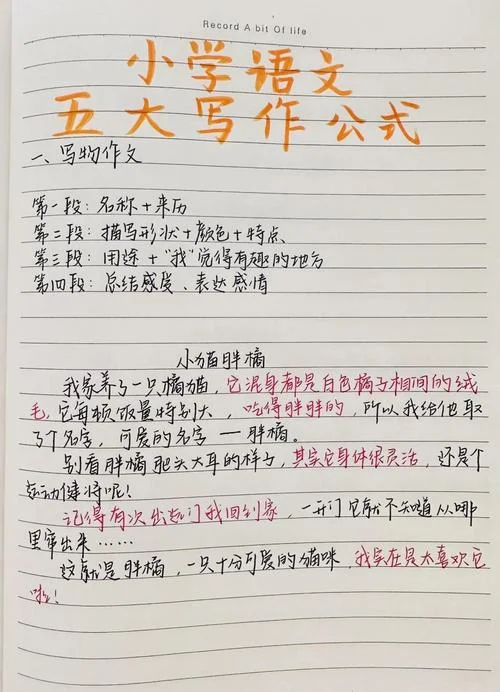 Record A bit Of life
小学语文
五大写作公式
一、写物作文
第一段：名称+来历
第二段：描写形状+颜色+特点
第三段：用途+“我”觉得有趣的地方
第四段：总结感受、表达感情
小猫胖橘
我家养了一只橘猫，它浑身都是白色橘子相间的绒
毛，它每顿饭量特别大，吃得胖胖的，所以我给他取
了个名字，可爱的名字——胖橘。
别看胖橘肥头大耳的样子，其实它身体很灵活，还是个
运动健将呢！
记得有次出远门我回到家，一开门它就不知道从哪
里窜出来……
这就是胖橘，一只十分可爱的猫咪，我实在是太喜欢它
啦！